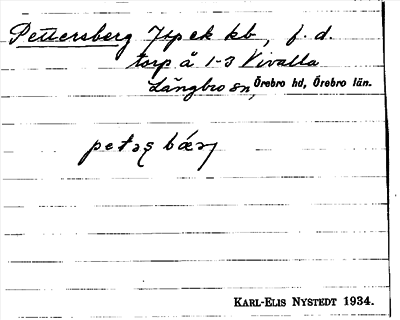 Pettersberg Jspek kb, f. d.
torp å 1-3 Vivalla
Längbro sn, Örebro hd, Örebro län.
petəş bærj
KARL-ELIS NYSTEDT 1934.